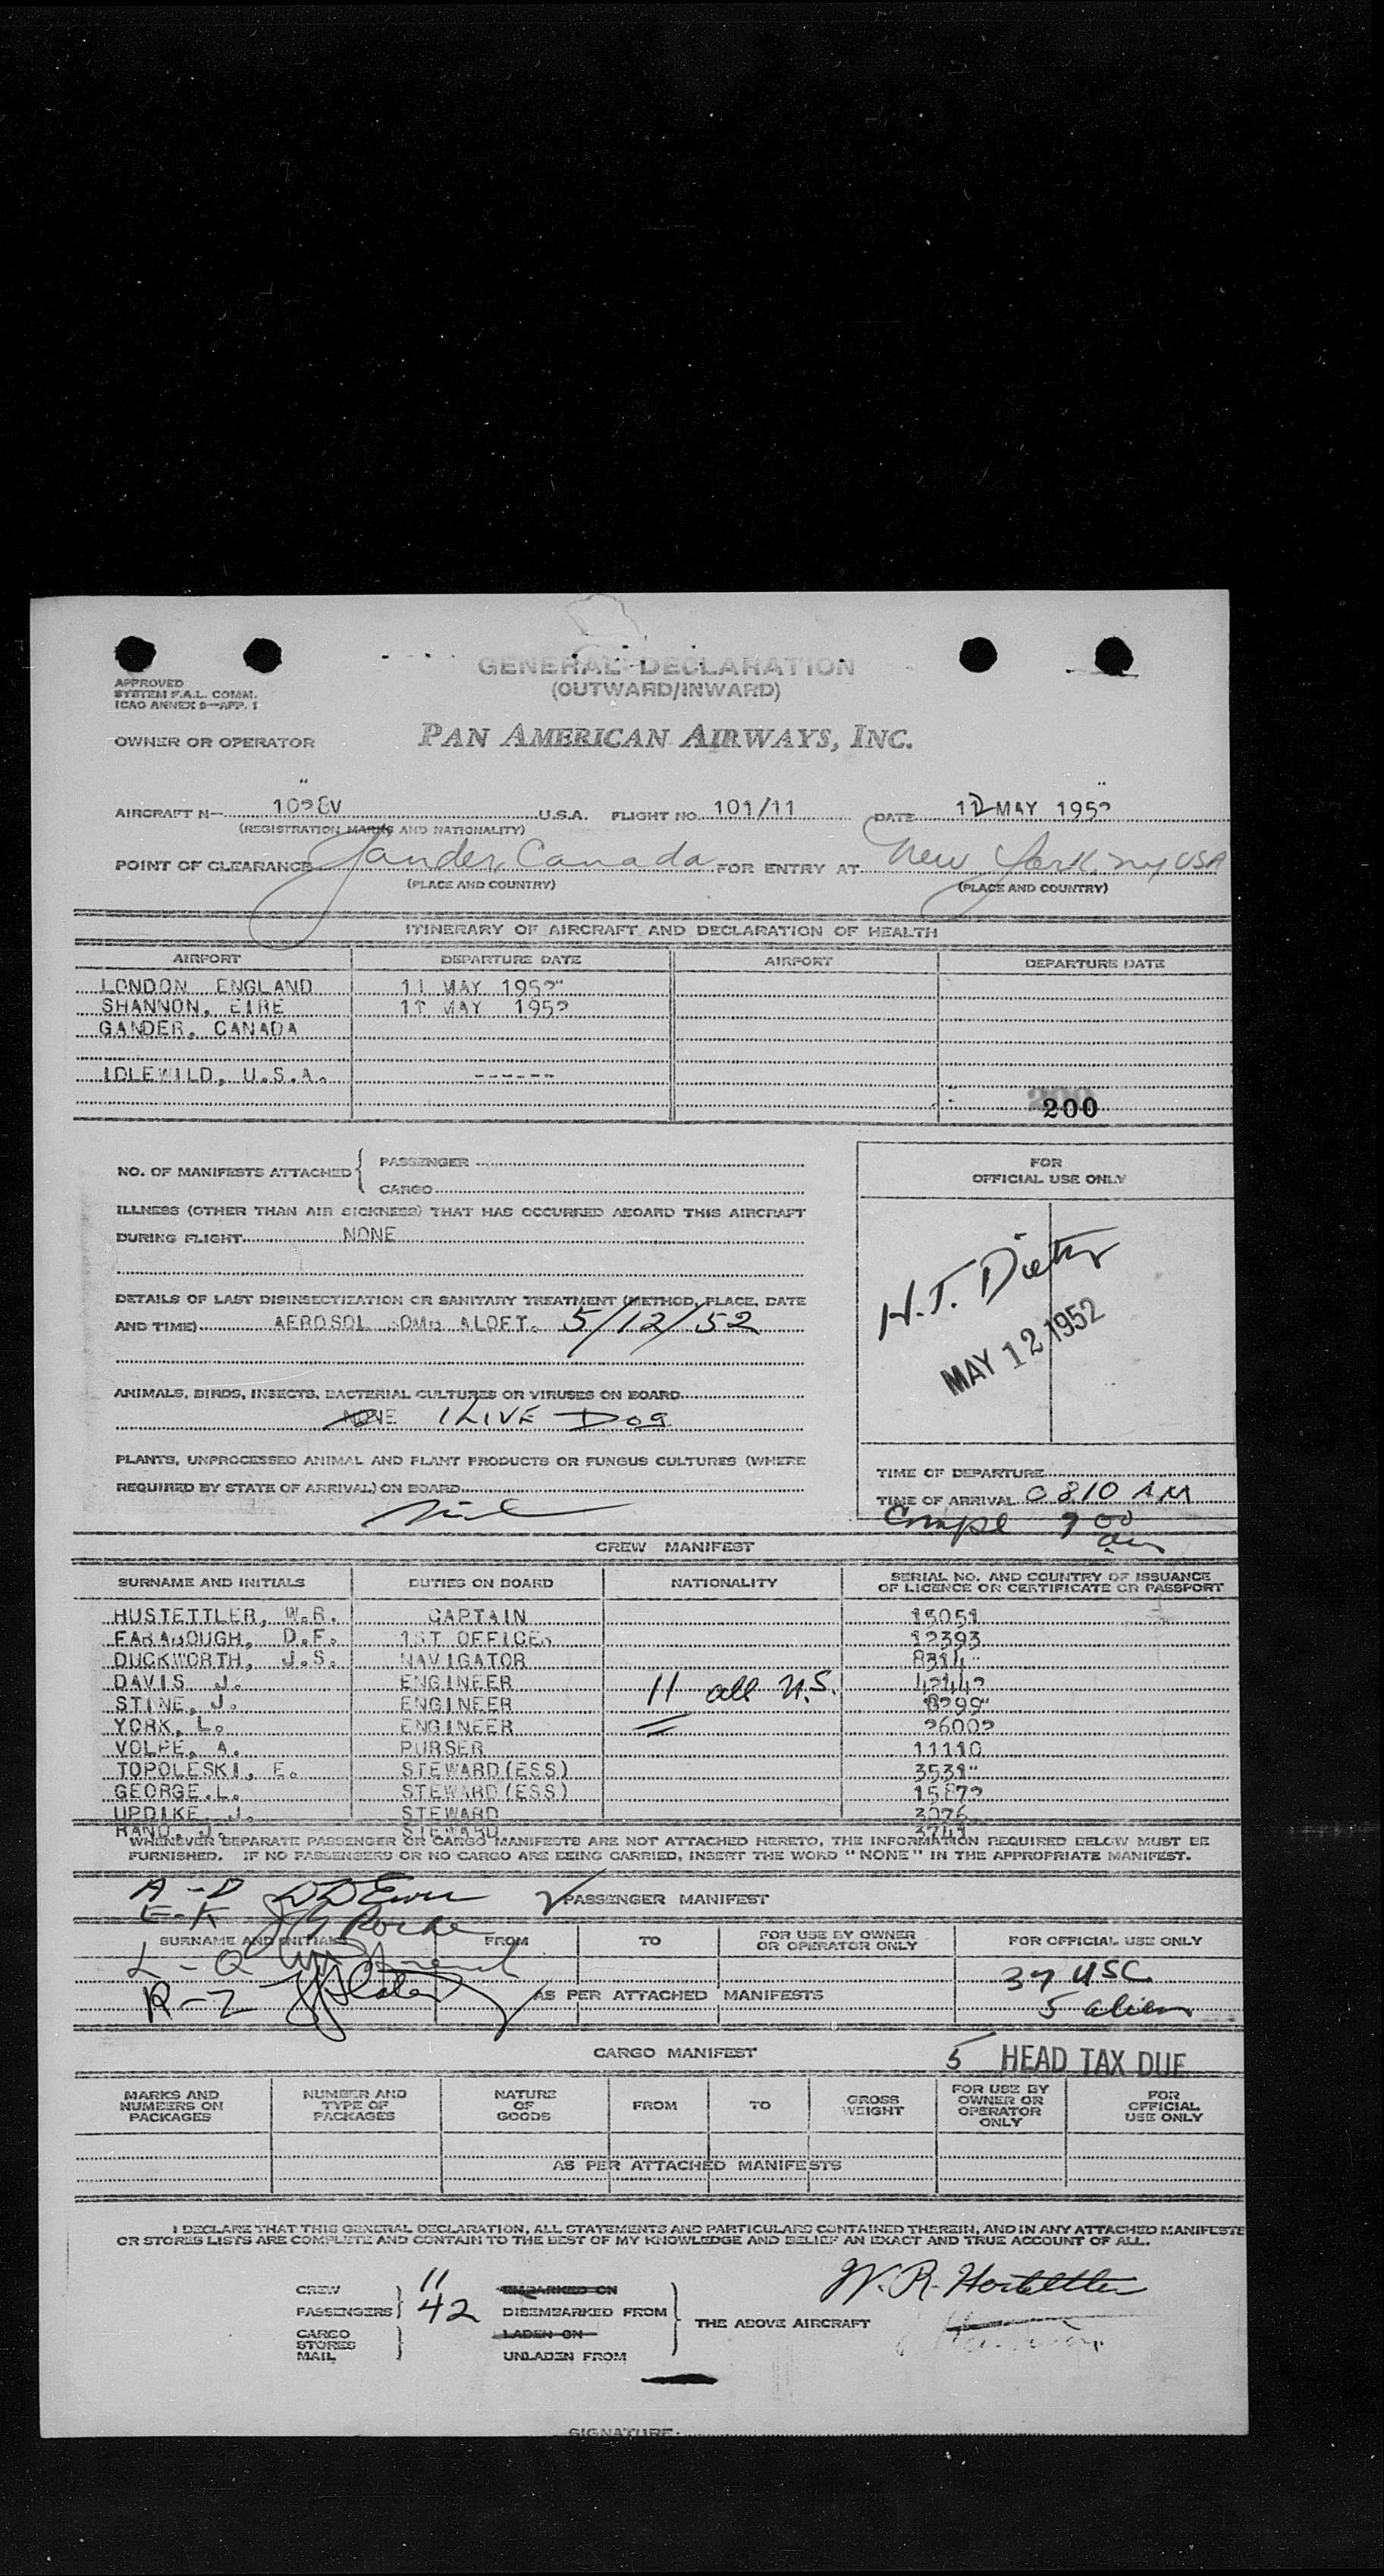 GENERAL DECLARATION
(OUTWARD/INWARD)
APPROVED
SYSTEM F.A.L. COMM.
ICAO ANNEX 9—APP. 1
OWNER OR OPERATOR PAN AMERICAN AIRWAYS, INC.
AIRCRAFT N— U.S.A. FLIGHT NO. 101/11 DATE 12 MAY 1952
(REGISTRATION MARKS AND NATIONALITY)
POINT OF CLEARANCE Gander, Canada FOR ENTRY AT New York, NY USA
(PLACE AND COUNTRY) (PLACE AND COUNTRY)
ITINERARY OF AIRCRAFT AND DECLARATION OF HEALTH
AIRPORT DEPARTURE DATE AIRPORT DEPARTURE DATE
LONDON ENGLAND 11 MAY 1952
SHANNON, EIRE 11 MAY 1952
GANDER, CANADA
IDLEWILD, U.S.A. ------
200
NO. OF MANIFESTS ATTACHED { PASSENGER
CARGO
FOR
OFFICIAL USE ONLY
ILLNESS (OTHER THAN AIR SICKNESS) THAT HAS OCCURRED ABOARD THIS AIRCRAFT
DURING FLIGHT NONE
H.T. Dietz
MAY 12 1952
DETAILS OF LAST DISINSECTIZATION OR SANITARY TREATMENT (METHOD, PLACE, DATE
AND TIME) AEROSOL ALOFT. 5/12/52
ANIMALS, BIRDS, INSECTS, BACTERIAL CULTURES OR VIRUSES ON BOARD
NONE 1 LIVE DOG
PLANTS, UNPROCESSED ANIMAL AND PLANT PRODUCTS OR FUNGUS CULTURES (WHERE
REQUIRED BY STATE OF ARRIVAL) ON BOARD
TIME OF DEPARTURE
TIME OF ARRIVAL 0810 AM
Compl 9 00 am
CREW MANIFEST
SURNAME AND INITIALS DUTIES ON BOARD NATIONALITY SERIAL NO. AND COUNTRY OF ISSUANCE
OF LICENCE OR CERTIFICATE OR PASSPORT
HUSTETTLER, W.R. CAPTAIN 15051
FARABOUGH, D.F. 1ST OFFICER 12393
DUCKWORTH, J.S. NAVIGATOR 8314
DAVIS J. ENGINEER 11 all U.S. 42442
STINE, J. ENGINEER 8299
YORK, L. ENGINEER 26002
VOLPE, A. PURSER 11110
TOPOLESKI, E. STEWARD(ESS) 3531
GEORGE.L. STEWARD(ESS) 15872
UPDIKE J. STEWARD 3026
RAND, J. STEWARD 3741
WHENEVER SEPARATE PASSENGER OR CARGO MANIFESTS ARE NOT ATTACHED HERETO, THE INFORMATION REQUIRED BELOW MUST BE
FURNISHED. IF NO PASSENGERS OR NO CARGO ARE BEING CARRIED, INSERT THE WORD "NONE" IN THE APPROPRIATE MANIFEST.
A-D PASSENGER MANIFEST
E-K
SURNAME AND INITIALS FROM TO FOR USE BY OWNER
OR OPERATOR ONLY FOR OFFICIAL USE ONLY
L-Q
37 USC
R-Z AS PER ATTACHED MANIFESTS 5 aliens
CARGO MANIFEST 5 HEAD TAX DUE
MARKS AND
NUMBERS ON
PACKAGES NUMBER AND
TYPE OF
PACKAGES NATURE
OF
GOODS FROM TO GROSS
WEIGHT FOR USE BY
OWNER OR
OPERATOR
ONLY FOR
OFFICIAL
USE ONLY
AS PER ATTACHED MANIFESTS
I DECLARE THAT THIS GENERAL DECLARATION, ALL STATEMENTS AND PARTICULARS CONTAINED THEREIN, AND IN ANY ATTACHED MANIFESTS
OR STORES LISTS ARE COMPLETE AND CONTAIN TO THE BEST OF MY KNOWLEDGE AND BELIEF AN EXACT AND TRUE ACCOUNT OF ALL.
CREW 11 EMBARKED ON
PASSENGERS 42 DISEMBARKED FROM
CARGO LADEN ON THE ABOVE AIRCRAFT
STORES
MAIL UNLADEN FROM
W. R. Hostettler
SIGNATURE: